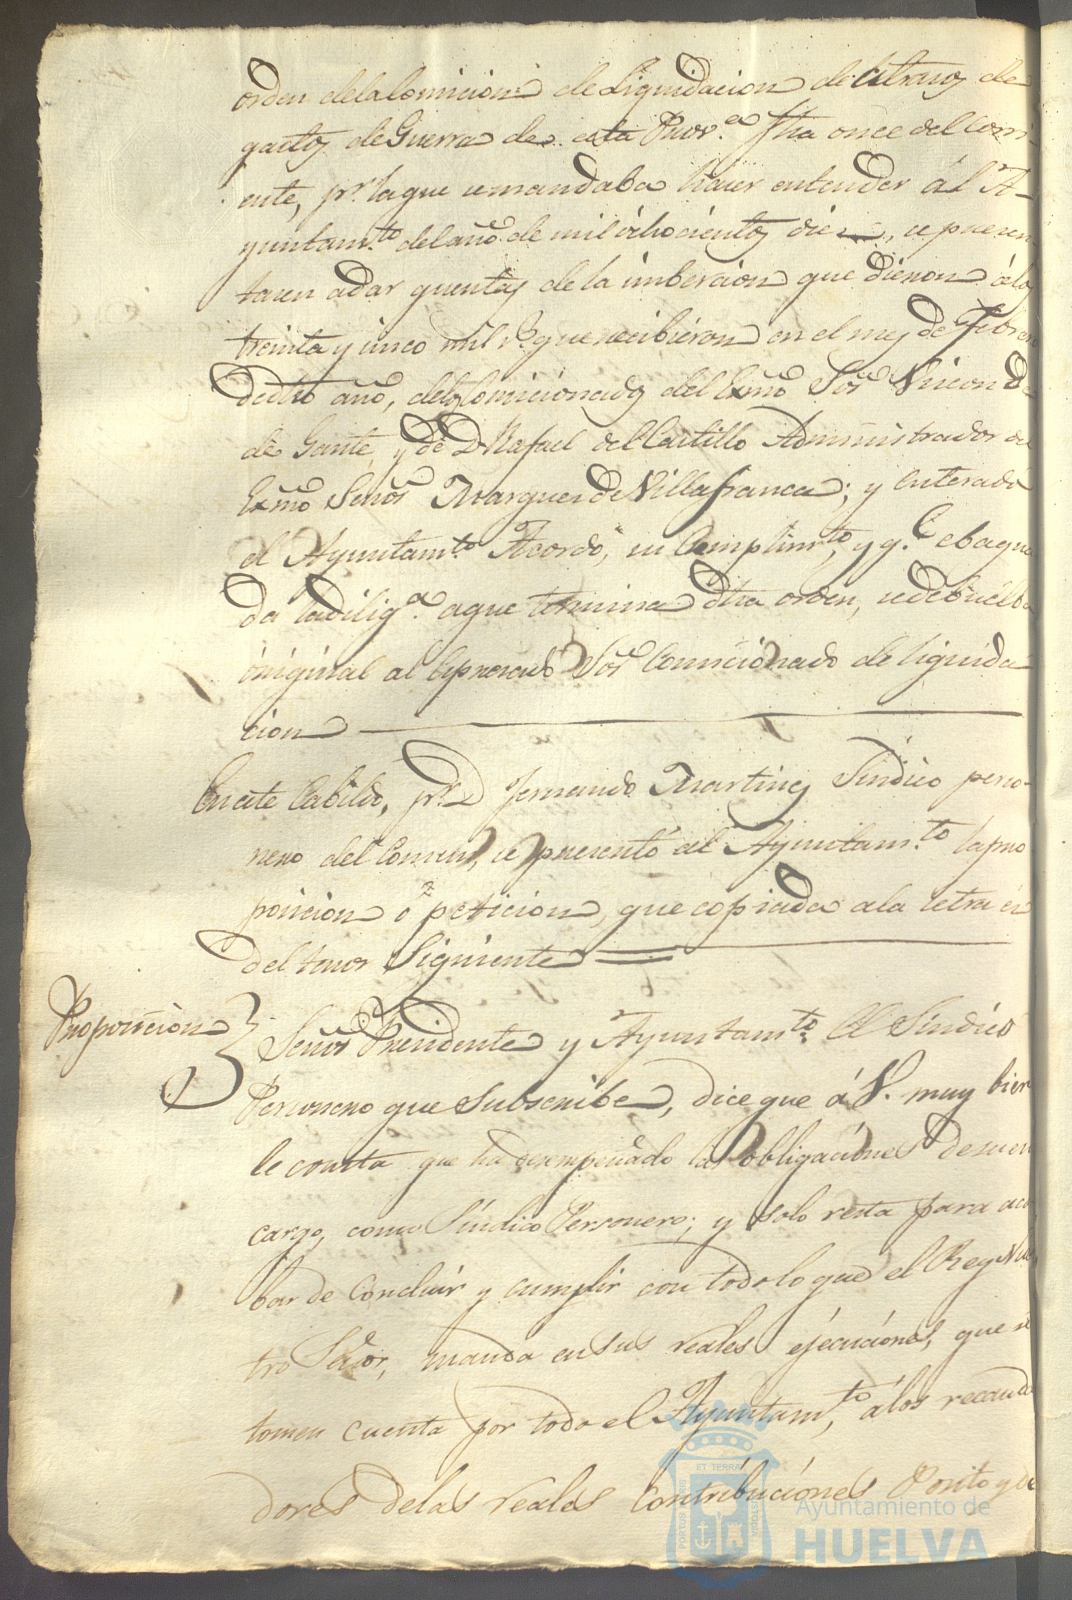 orden dela Comicion de Liquidacion de atrasos de
gastos de Guerra de esta Prov.ª fha once del corri-
ente, pr. la que se mandaba hacer entender ál A-
yuntam.to del año de mil ochocientos diez, se presen
tasen adar quentas de la imbercion que dieron álos
treinta y cinco mil r.s que recibieron en el mes de
dedho año, delos Comicionados del Exmo Sor
de Gante, y de D Rafael del Castillo Administrador del
Exmo Señor Marques de Villafranca; y enterado
el Ayuntam.to Acordó, su Cumplim.to, y q.e
da la dilig.a aque termina dha orden, sedebuelba
original al Expresado Sor Comicionado de liquida
cion
En este Cabildo, pr. D Fernando Martines Sindico perso-
nero del Comun, se presentó al Ayuntam.to la pro
posicion ó peticion, que copiada ala letra es
del tenor Siguiente
Proposicion
Señor Presidente y Ayuntam.to El Sindico
Personero que Subscribe, dice que á V. muy bien
le consta que ha desempeñado las obligaciónes desu en
cargo, como Síndico Personero; y solo resta para aca
bar de Concluir y cumplir con todo lo que el Rey Nues
tro Señor, manda en sus reales ejecuciónes, que se
tomen cuenta por todo el Ayuntam.to, álos recauda
dores delas reales Contribuciónes Posito y de
PORTUS MARIS ET TERRÆ CUSTODIA
Ayuntamiento de
HUELVA